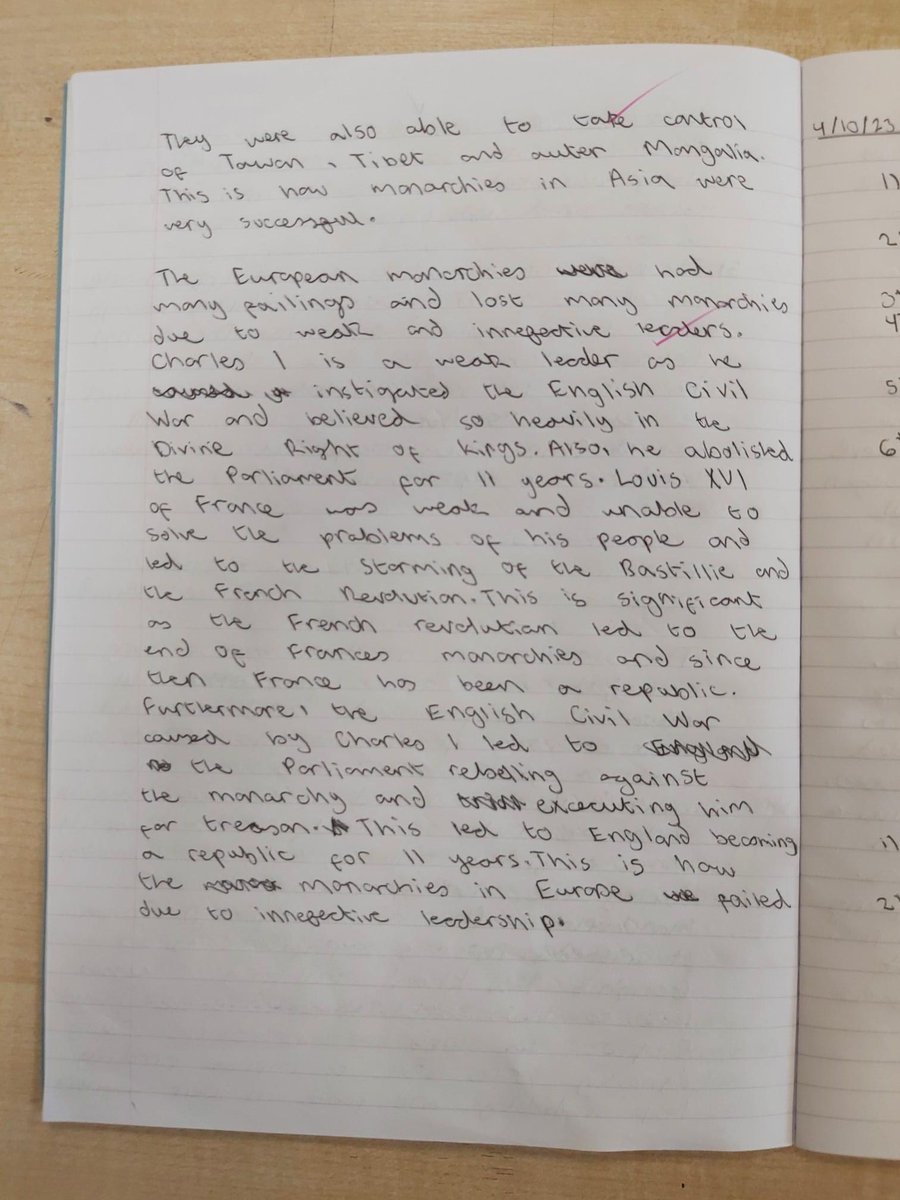 They were also able to take control
of Tawan, Tibet and outer Mongalia.
This is how monarchies in Asia were
very successful.
The European monarchies were had
many failings and lost many monarchies
due to weak and inneffective leaders.
Charles I is a weak leader as he
caused instigated the English Civil
War and believed so heavily in the
Divine Right of kings. Also, he abolisted
the Parliament for 11 years. Louis XVI
of France was weak and unable to
solve the problems of his people and
led to the Storming of the Bastillie and
the French Revolution. This is significant
as the French revolution led to the
end of Frances monarchies and since
then France has been a republic.
Furthermore, the English Civil War
caused by Charles I led to England
the Parliament rebelling against
the monarchy and executing him
for treason. This led to England becoming
a republic for 11 years. This is how
the monarchies in Europe failed
due to inneffective leadership.
4/10/23
1)
2)
3*
4
5
6*
1)
2)